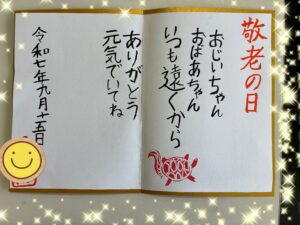 敬老の日
おじいちゃん
おばあちゃん
いつも遠くから
ありがとう
元気でいてね
令和七年九月十五日